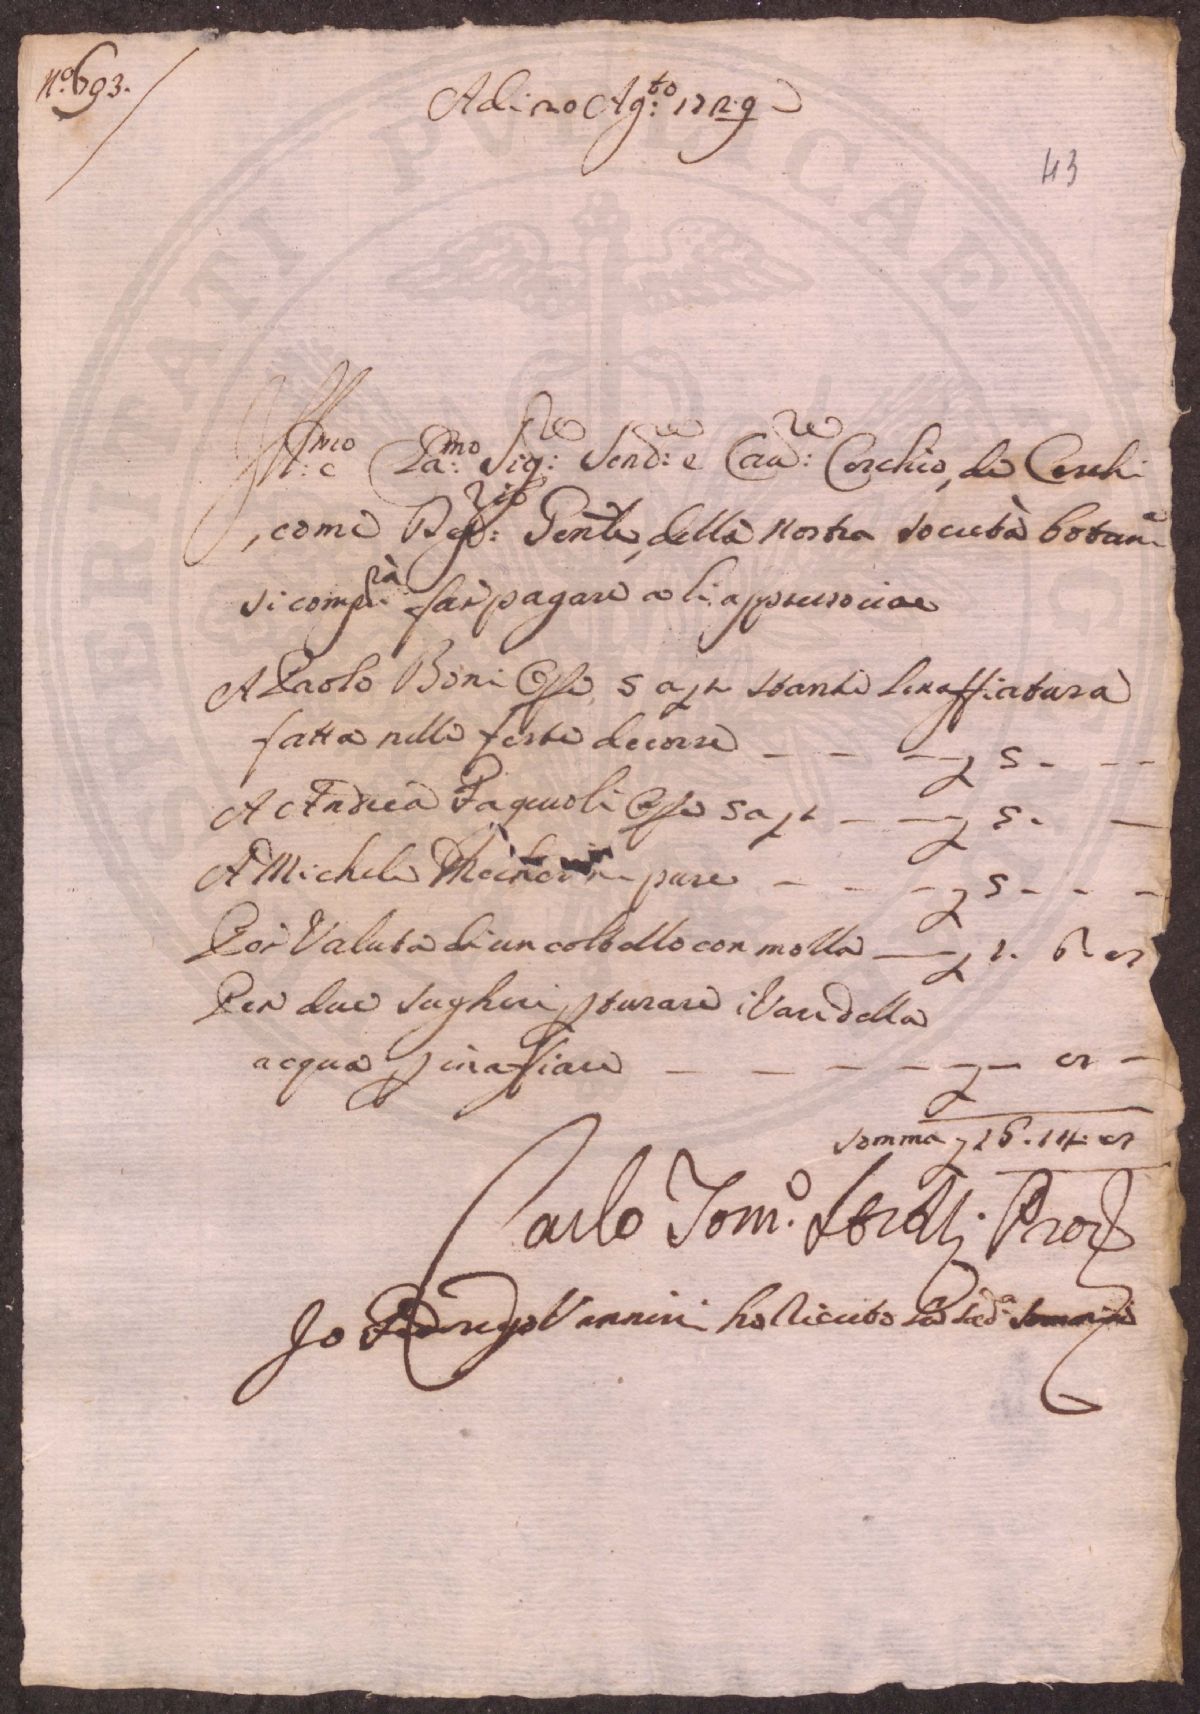 N.o 693.
Adi 20 Ag:to 1729
43
Ill:mo e Cla:mo Sig:re Send:re e Cau:re Cerchio, de Cerchi
, come Deg: Pente, della nostra società botan:a
si comp:rà far pagare a li appresso cioe
A Paolo Boni Op:e 5 agto stante l'inaffiatura
fatta nelle feste decorse — — — 5 . — —
A Andrea Pagnioli Op:e 5 agto — — 5 . —
A Michele pure — — — 5 — — —
Per Valuta di un coltello con molla — 1 . 6 . 8
Per due sugheri p turare i Vasi della
acqua p inaffiare — — — — — — 8 —
somma 16 . 14 . 8
Carlo Tom:o Prov:
Io Vannini ho riceuto la sud:a somma